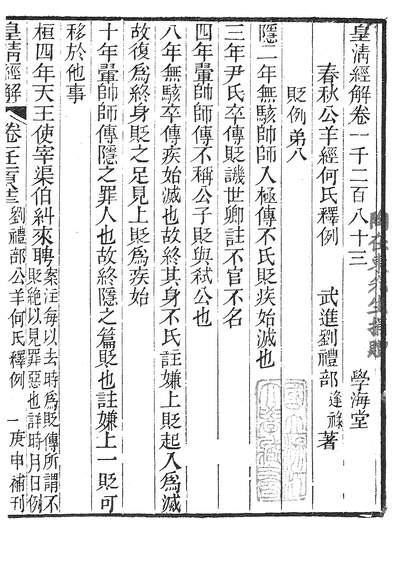 皇清經解卷一千二百八十三
學海堂
春秋公羊經何氏釋例
武進劉禮部逢祿著
貶例弟八
隱二年無駭帥師入極傳不氏貶疾始滅也
三年尹氏卒傳貶譏世卿註不官不名
四年翬帥師傳不稱公子貶與弒公也
八年無駭卒傳疾始滅也故終其身不氏註嫌上貶起入為滅
故復為終身貶之足見上貶為疾始
十年翬帥師傳隱之罪人也故終隱之篇貶也註嫌上一貶可
移於他事
桓四年天王使宰渠伯糾來聘案註每以去時為貶傳所謂不
貶絶以見罪惡也詳時月日例
皇清經解
劉禮部公羊何氏釋例
一
庚申補刊